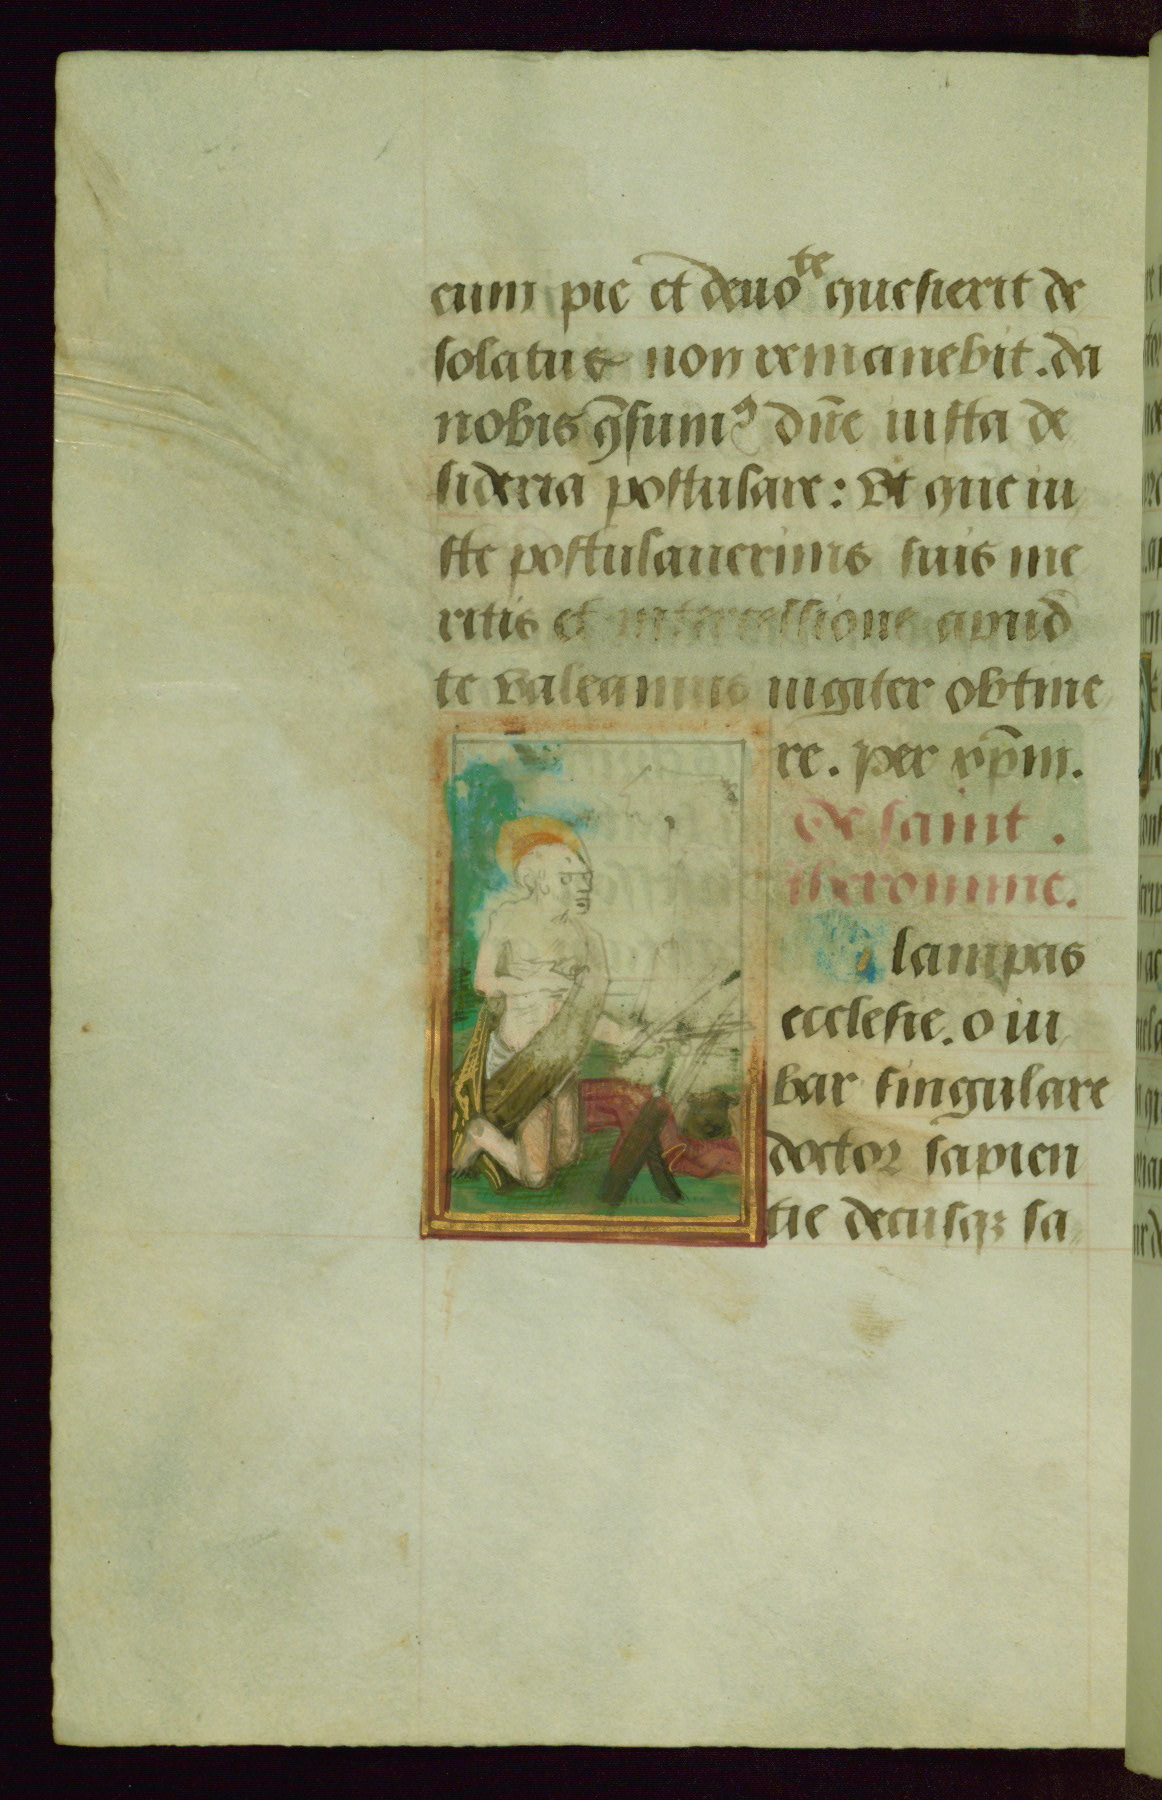 eum pie et deuote quesierit de
solatus non remanebit. da
nobis q̄sumꝰ dn̄e iusta de
sideria postulare: Vt que iu
ste postulauerimus suis me
ritis et intercessione apud
te valeamus iugiter obtine
re. per xp̄m.
De saint
iheronime.
lampas
ecclesie. o iu
bar singulare
doctor sapien
tie decusqꝫ sa